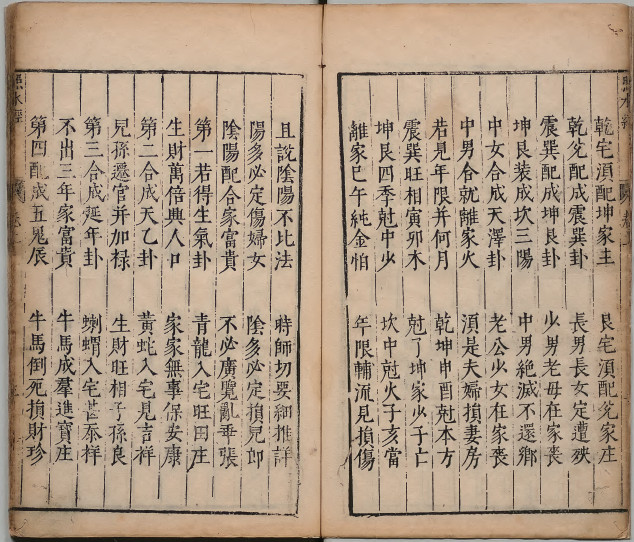 照水經
卷一
乾宅湏配坤家主 艮宅湏配兊家庄
乾兊配成震巽卦 長男長女定遭殃
震巽配成坤艮卦 少男老母在家喪
坤艮装成坎三陽 中男絶滅不還鄉
中女合成天澤卦 老公少女在家喪
中男合就離家火 湏是夫婦損妻房
若見年限并何月 乾坤申酉尅本方
震巽旺相寅卯木 尅了坤家少子亡
坤艮四季尅中少 坎中尅火子亥當
離家巳午純金怕 年限輔流見損傷
且説陰陽不比法 時師切要細推詳
陽多必定傷婦女 陰多必定損兒郎
陰陽配合家富貴 不必廣覽亂乖張
第一若得生氣卦 青龍入宅旺田庄
生財萬倍興人口 家家無事保安康
第二合成天乙卦 黃蛇入宅見吉祥
兒孫遷官并加禄 生財旺相子孫良
第三合成延年卦 蝌蝟入宅甚禎祥
不出三年家富貴 牛馬成羣進寶庄
第四配成五鬼辰 牛馬倒死損財珍
照水經
卷一